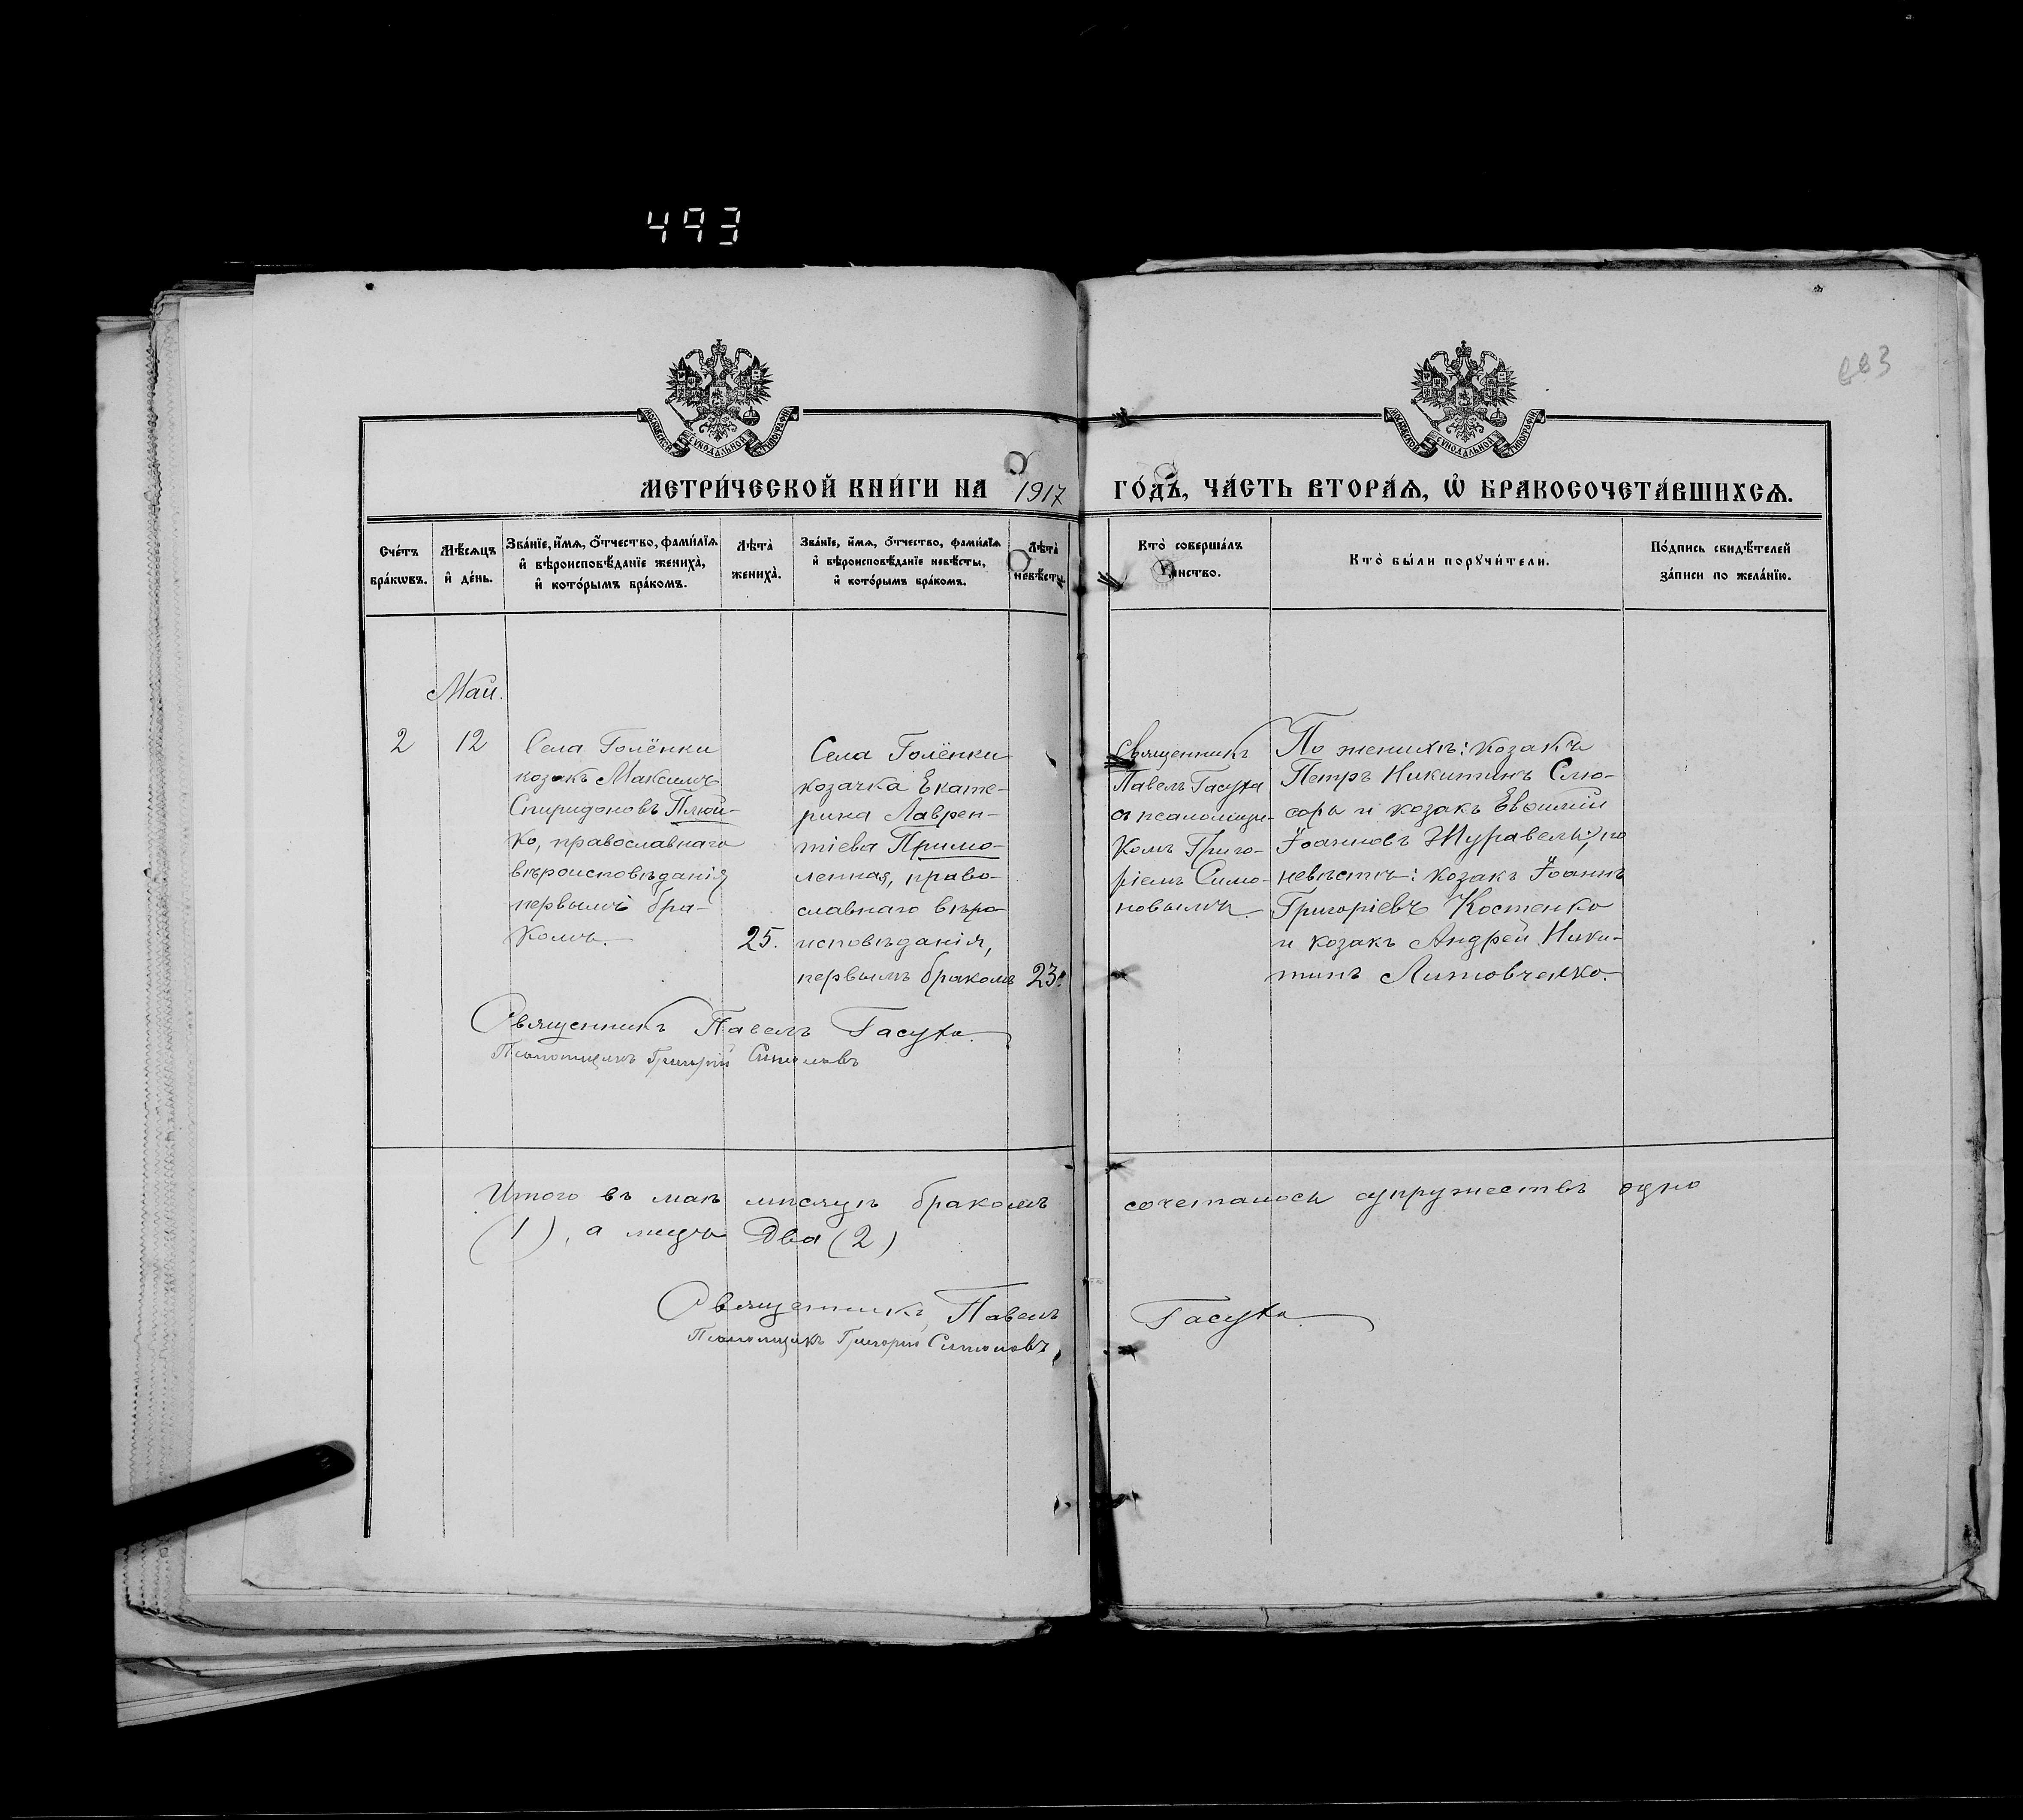 493
663
МОСКОВСКОЙ СѴНОДАЛЬНОЙ ТИПОГРАФІИ
МОСКОВСКОЙ СѴНОДАЛЬНОЙ ТИПОГРАФІИ
МЕТРИ́ЧЕСКОЙ КНИ́ГИ НА 1917 ГО́ДЪ, ЧА́СТЬ ВТОРА́Ѧ, Ѽ БРАКОСОЧЕТА́ВШИХСѦ.
Сче́тъ
бра́кωвъ.
Мѣ́сѧцъ
и҆ де́нь.
Зва́нїе, и҆́мѧ, ѻ҆́тчество, фами́лїѧ
и҆ вѣроисповѣ́данїе жениха̀,
и҆ кото́рымъ бра́комъ.
Лѣта̀
жениха̀.
Зва́нїе, и҆́мѧ, ѻ҆́тчество, фами́лїѧ
и҆ вѣроисповѣ́данїе невѣ́сты,
и҆ кото́рымъ бра́комъ.
Лѣта̀
невѣ́сты.
Кто̀ соверша́лъ
таинство.
Кто̀ бы́ли порꙋчи́тели.
По́дпись свидѣ́телей
за́писи по жела́нїю.
Май.
2
12
Села Голёнки
козакъ Максимъ
Спиридоновъ Плюй-
ко, православнаго
вѣроисповѣданія
первымъ бра-
комъ.
25.
Села Голёнки
козачка Екате-
рина Лаврен-
тіева Примо-
ленная, право-
славнаго вѣро-
исповѣданія,
первымъ бракомъ
23.
Священникъ
Павелъ Гасуха
съ псаломщи-
комъ Григо-
ріемъ Симо-
новымъ.
По женихѣ: козакъ
Петръ Никитинъ Слю-
сарь и козакъ Евѳимій
Іоанновъ Журавель; по
невѣстѣ: козакъ Іоаннъ
Григоріевъ Костенко
и козакъ Андрей Ники-
тинъ Литовченко.
Священникъ Павелъ Гасуха.
Псаломщикъ Григорій Симоновъ
Итого въ маѣ мѣсяцѣ бракомъ сочеталось супружествъ одно
(1), а лицъ два (2)
Священникъ Павелъ Гасуха.
Псаломщикъ Григорій Симоновъ